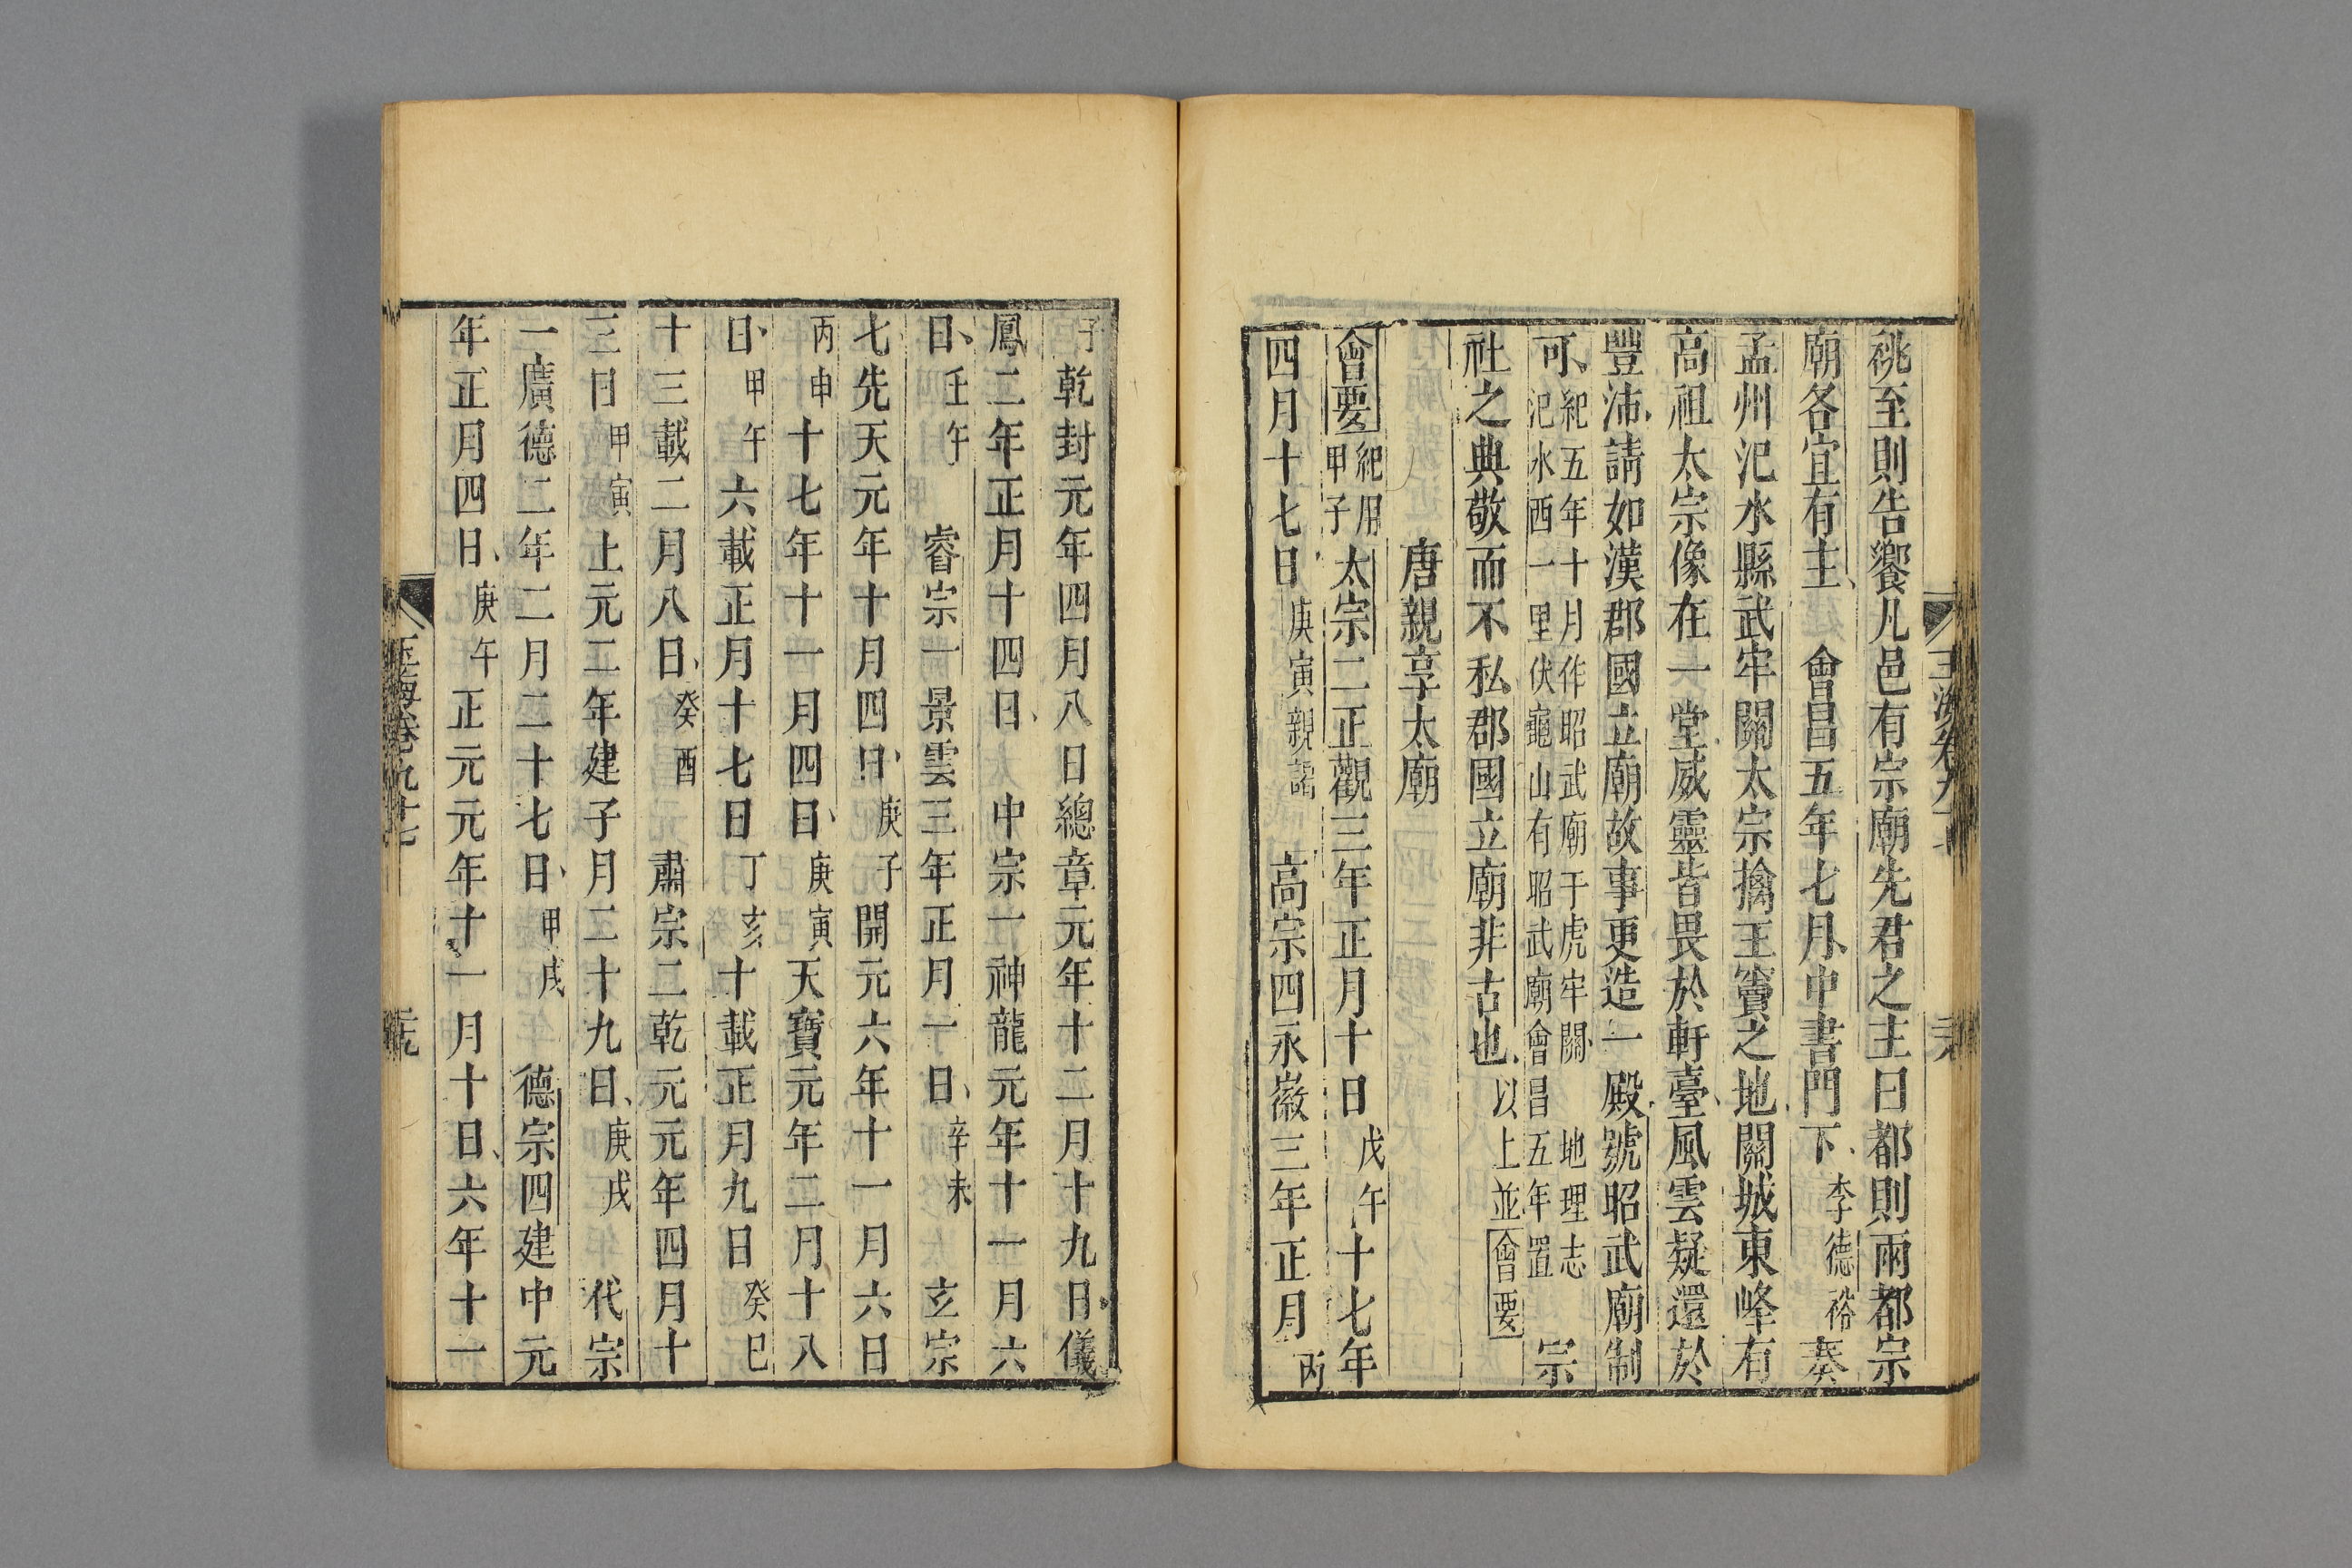 祧至則告饗凡邑有宗廟先君之主曰都則兩都宗
廟各宜有主 會昌五年七月中書門下李德裕奏
孟州汜水縣武牢關太宗擒王竇之地關城東峰有
高祖太宗像在一堂威靈皆畏於軒臺風雲疑還於
豐沛請如漢郡國立廟故事更造一殿號昭武廟制
可紀五年十月作昭武廟于虎牢關 地理志汜水西一里伏龜山有昭武廟會昌五年置 宗
社之典敬而不私郡國立廟非古也以上並會要
唐親享太廟
會要紀用甲子太宗二正觀三年正月十日戊午十七年
四月十七日庚寅親謁 高宗四永徽三年正月丙
子乾封元年四月八日總章元年十二月十九日儀
鳳二年正月十四日 中宗一神龍元年十一月六
日壬午 睿宗一景雲三年正月一日辛未 玄宗
七先天元年十月四日庚子開元六年十一月六日
丙申十七年十一月四日庚寅天寶元年二月十八
日甲午六載正月十七日丁亥十載正月九日癸巳
十三載二月八日癸酉 肅宗二乾元元年四月十
三日甲寅上元二年建子月二十九日庚戌 代宗
一廣德二年二月二十七日甲戌 德宗四建中元
年正月四日庚午正元元年十一月十日六年十一
玉海卷九十七